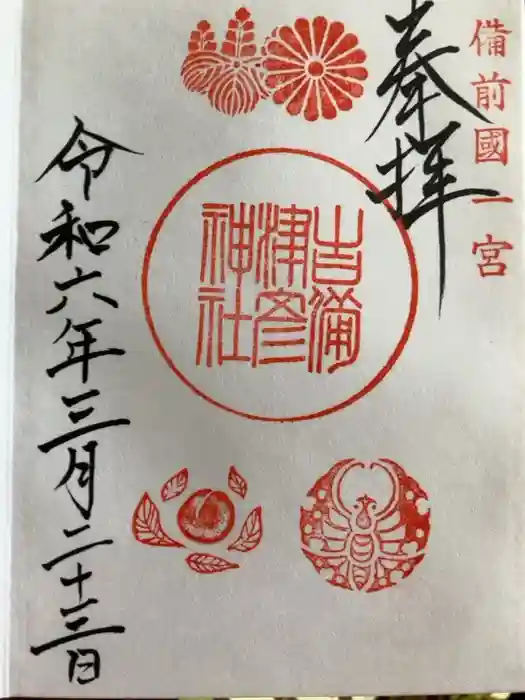 備前國一宮
奉拝
吉備
津彦
神社
令和六年三月二十三日